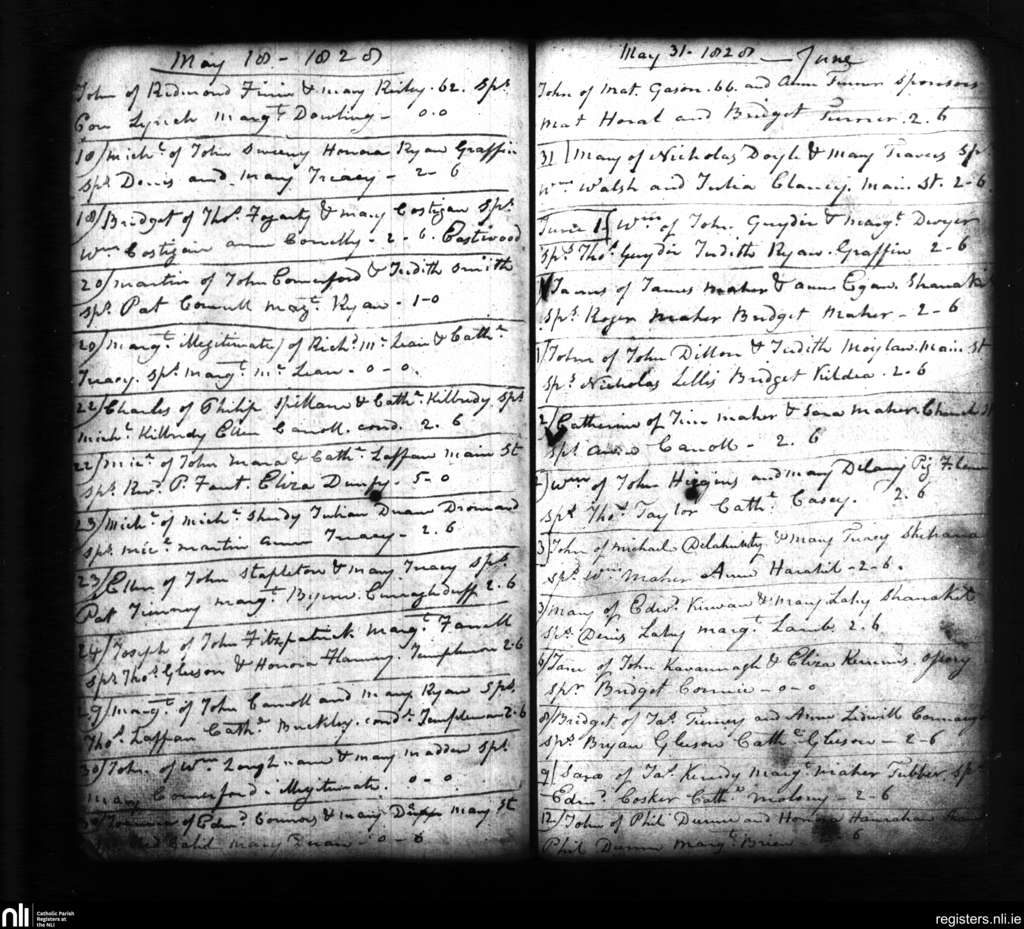 May 18 - 1828
John of Redmond Finn & Mary Kirby. 62. Sprs
Con Lynch Margt Dowling - 0-0
18/ Michl of John Sweeny Honora Ryan Graffin
Sprs Denis and Mary Treacy - 2-6
18/ Bridget of Thos Fogarty & Mary Costigan Sprs
Wm Costigan Anne Connelly - 2-6. Eastwood
20/ Martin of John Comerford & Judith Smith
Sprs Pat Connell Margt Ryan - 1-0
20/ Margt Illegitimate) of Richd Mc Lean & Cathe
Treacy. Sprs Margt Mc Lean - 0-0.
22/ Charles of Philip Spillane & Cathe Kilbridy Sprs
Michl Kilbridy Ellen Carroll. cond. 2.6
22/ Micl of John Mara & Cathe Laffan Main St
Sprs Revd P. Fant. Eliza Dunphy - 5-0
23/ Michl of Michl Julian Duan Dromard
Sprs Micl Martin Ann Treacy - 2.6
23/ Ellen of John Stapleton & Mary Tracy Sprs
Pat Margt Byrne. Curraghduff 2.6
24/ Joseph of John Fitzpatrick Margt Farrell
Sprs Thos Gleeson & Honora Flannery. Templemore 2-6
29/ Margt of John Carroll and Mary Ryan Sprs.
Thos Laffan Cathe Buckley. cond. Templemore 2-6
30/ John of Wm Loughnane & Mary Madden Sprs
Mary Comerford. Illegitimate. 0-0
of Edmd Connors & Mary Main St
Mary Duan - 0-6
May 31 - 1828 - June
John of Mat. Gason. 66. and Ann Turner Sponsors
Mat Horal and Bridget Turner. 2.6
31/ Mary of Nicholas Doyle & Mary Travers Sprs
Wm Walsh and Julia Clancy. Main St. 2-6
June 1/ Wm of John Guydir & Margt Dwyer
Sprs Thos Guydir Judith Ryan. Graffin 2-6
James of James Maher & Anne Egan. Shanakil
Sprs Roger Maher Bridget Maher - 2-6
1/ John of John Dillon & Judith Moylan. Main St
Sprs Nicholas Lillis Bridget Kildea. 2-6
2/ Catherine of Tim Maher & Sara Maher. Church St
Sprs Carroll - 2.6
2/ Wm of John Higgins and Mary Delany Pig
Sprs Thos Taylor Cathe Casey. 2.6
3/ John of Michael Delahunty & Mary Tracy
Sprs Wm Maher Anne - 2-6.
3/ Mary of Edwd Kirwan & Mary Lahy Shanakil
Sprs Denis Lahy Margt Lamb. 2.6
6/ Jane of John Kavannagh & Eliza
Sprs Bridget - 0-0
8/ Bridget of Jas Tierney and Anne Lidwill
Sprs Bryan Gleeson Cathe Gleeson - 2-6
9/ Sara of Jas Kenedy Margt Maher Tubber Sprs
Edmd Cosker Cathe Molony - 2-6
12/ John of Phil Dunne and Honora Hanrahan
Phil Dunne Margt Brien - 6
nli
Catholic Parish
Registers at
the NLI
registers.nli.ie